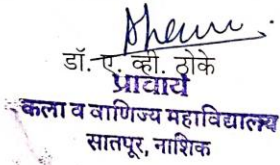 डॉ. ए. व्ही. ठोके
प्राचार्य
कला व वाणिज्य महाविद्यालय
सातपूर, नाशिक